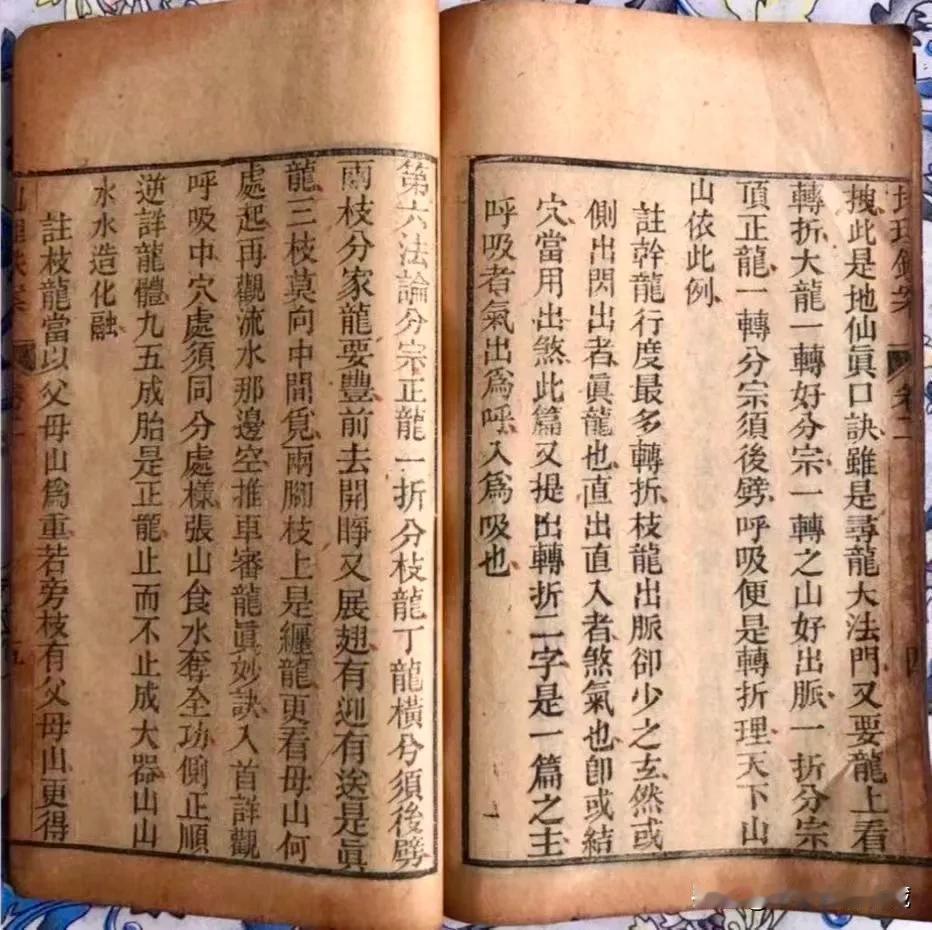 拽此是地仙眞口訣雖是尋龍大法門又要龍上看
轉折大龍一轉好分宗一轉之山好出脈一折分宗
頂正龍一轉分宗須後劈呼吸便是轉折理天下山
山依此例
註幹龍行度最多轉折枝龍出脈卻少之玄然或
側出閃出者眞龍也直出直入者煞氣也卽或結
穴當用出煞此篇又提出轉折二字是一篇之主
呼吸者氣出爲呼入爲吸也
第六法論分宗正龍一折分枝龍丁龍橫分須後劈
兩枝分家龍要豐前去開睜又展翅有迎有送是眞
龍三枝莫向中間覓兩腳枝上是纏龍更看母山何
處起再觀流水那邊空推車審龍眞妙訣入首詳觀
呼吸中穴處須同分處樣張山食水奪全功側正順
逆詳龍體九五成胎是正龍止而不止成大器山山
水水造化融
註枝龍當以父母山爲重若旁枝有父母山更得